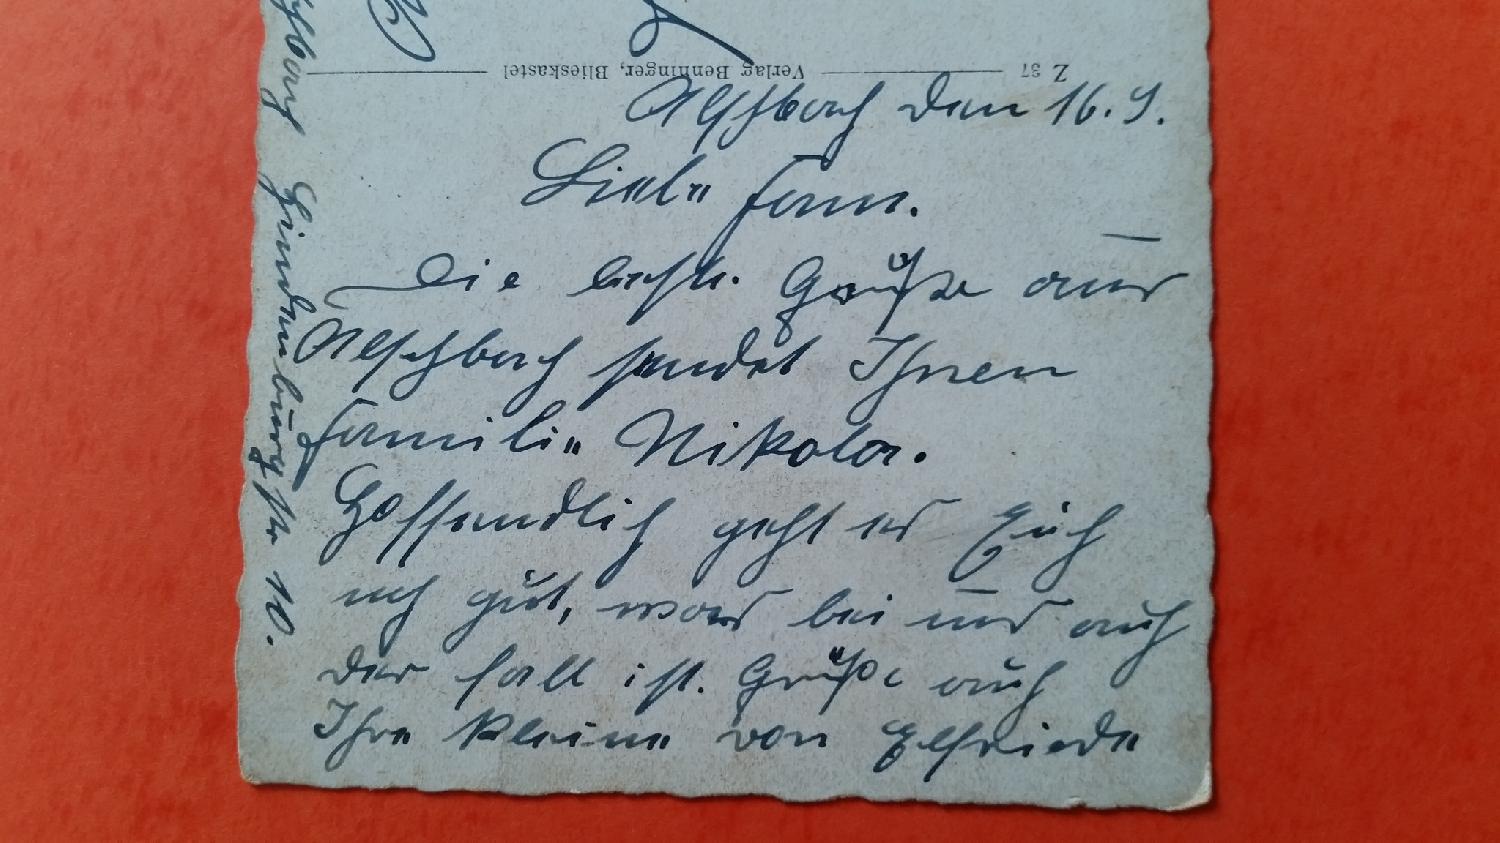 Z 37 Verlag Benninger, Blieskastel
Alschbach den 16.9.
Liebe Fam.
Die besten Grüße aus
Alschbach sendet Ihnen
Familie Nikolai.
Hoffendlich geht es Euch
noch gut, was bei uns auch
der Fall ist. Grüße auch
Ihre kleine von Elfriede
Hindenburgstr 10.